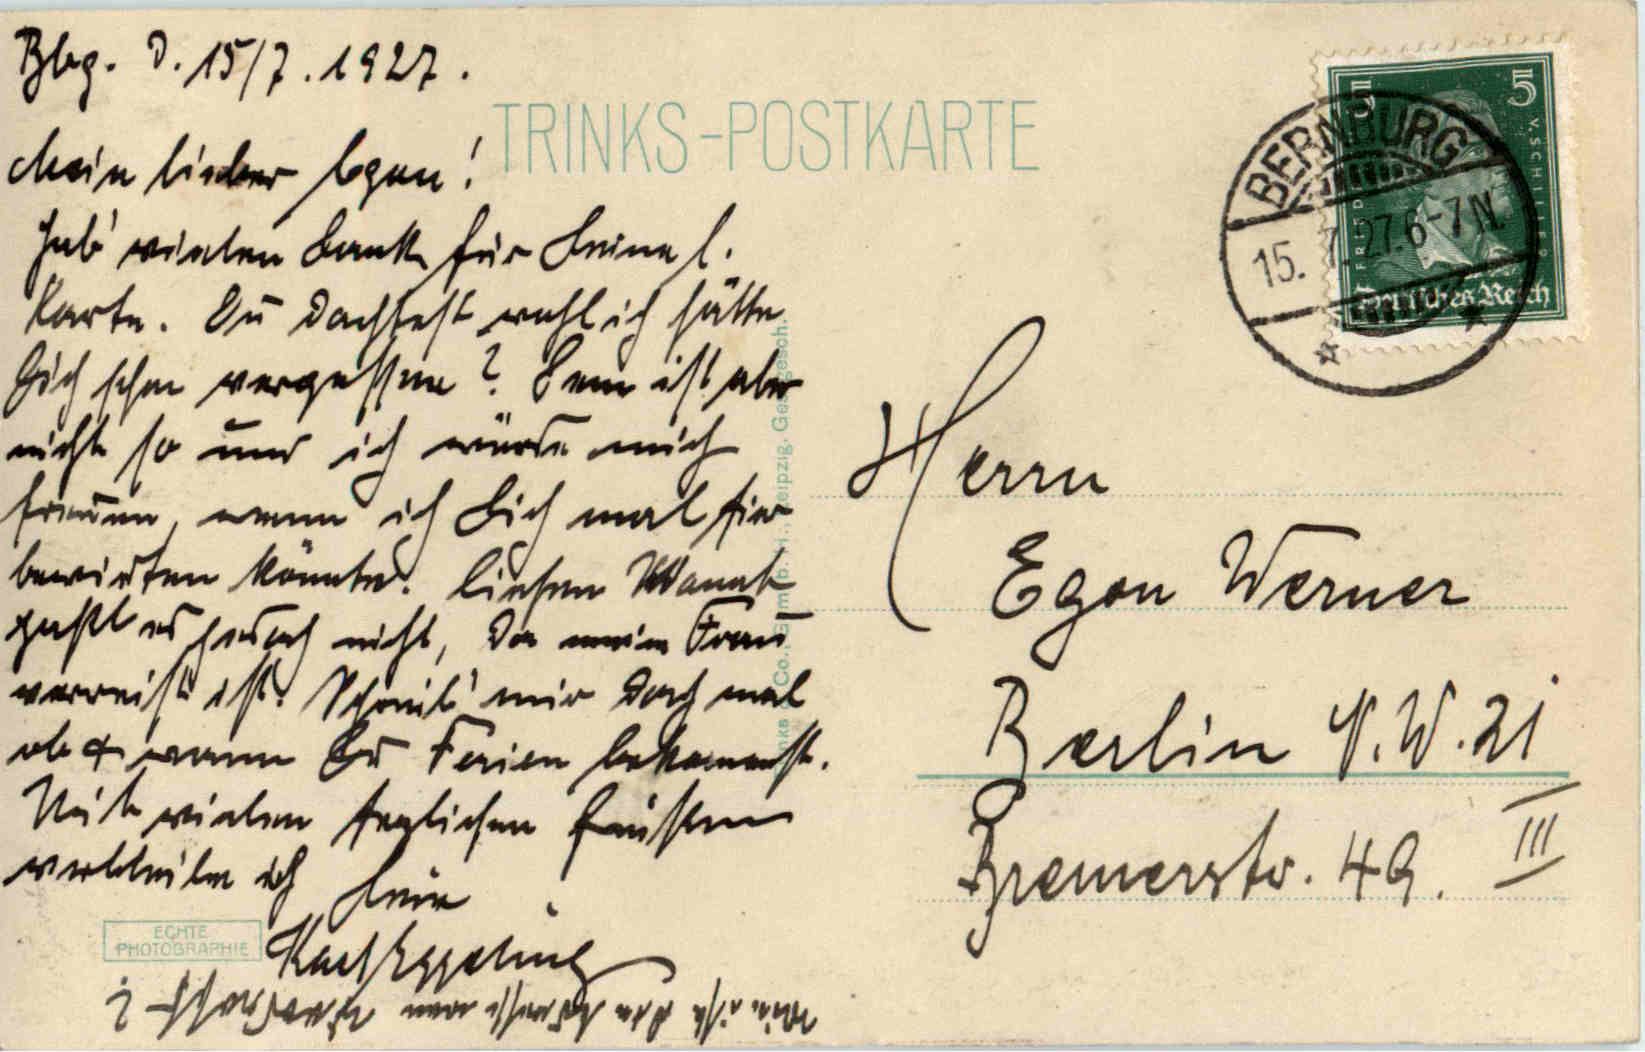 Bbg. d. 15/7. 1927.
TRINKS-POSTKARTE
Mein lieber Egon!
Hab' vielen Dank für Deine l.
Karte. Du dachtest wohl ich hätte
Dich schon vergessen? Dem ist aber
nicht so und ich würde mich
freuen, wenn ich Dich mal hier
bewirten könnte. Diesen Monat
paßt es jedoch nicht, da meine Frau
verreist ist. Schreib' mir doch mal
ob & wann Du Ferien bekommst.
Mit vielen herzlichen Grüßen
verbleibe ich Dein
Karl Eggeling
Wie ist die Adresse von ?
ECHTE
PHOTOGRAPHIE
Co., G.m.b.H., Leipzig. Ges. gesch.
5 5
FRIED. V. SCHILLER
Deutsches Reich
BERNBURG
15. 7. 27. 6-7 N.
Herrn
Egon Werner
Berlin N.W. 21
Bremerstr. 49. III